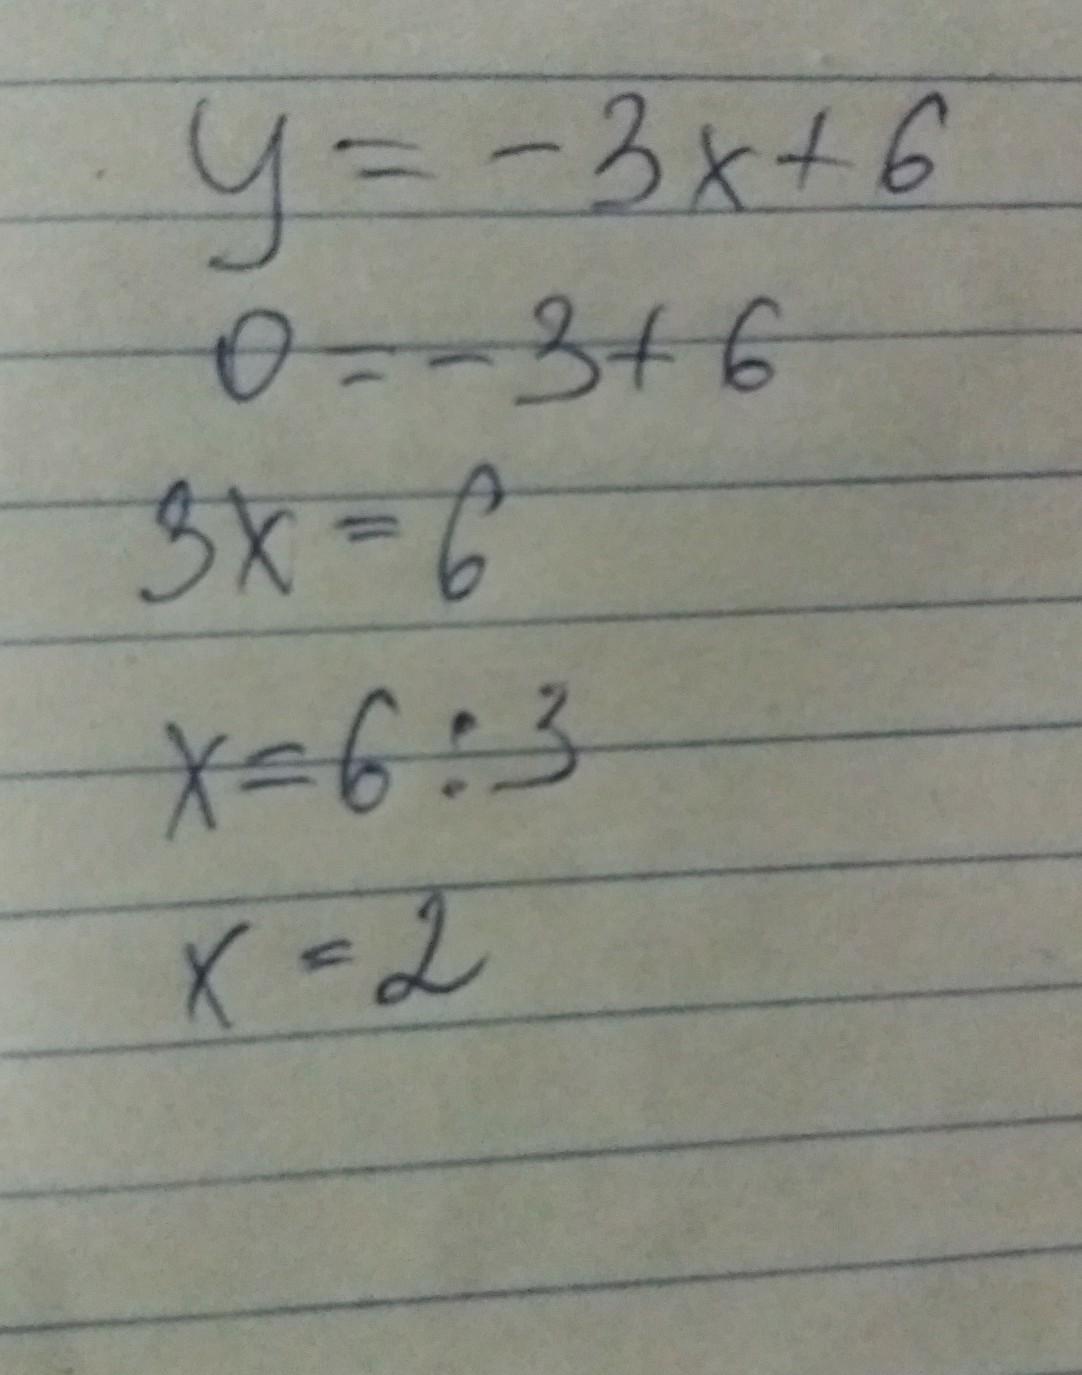 y = -3x+6
0 = -3+6
3x = 6
x = 6 : 3
x = 2